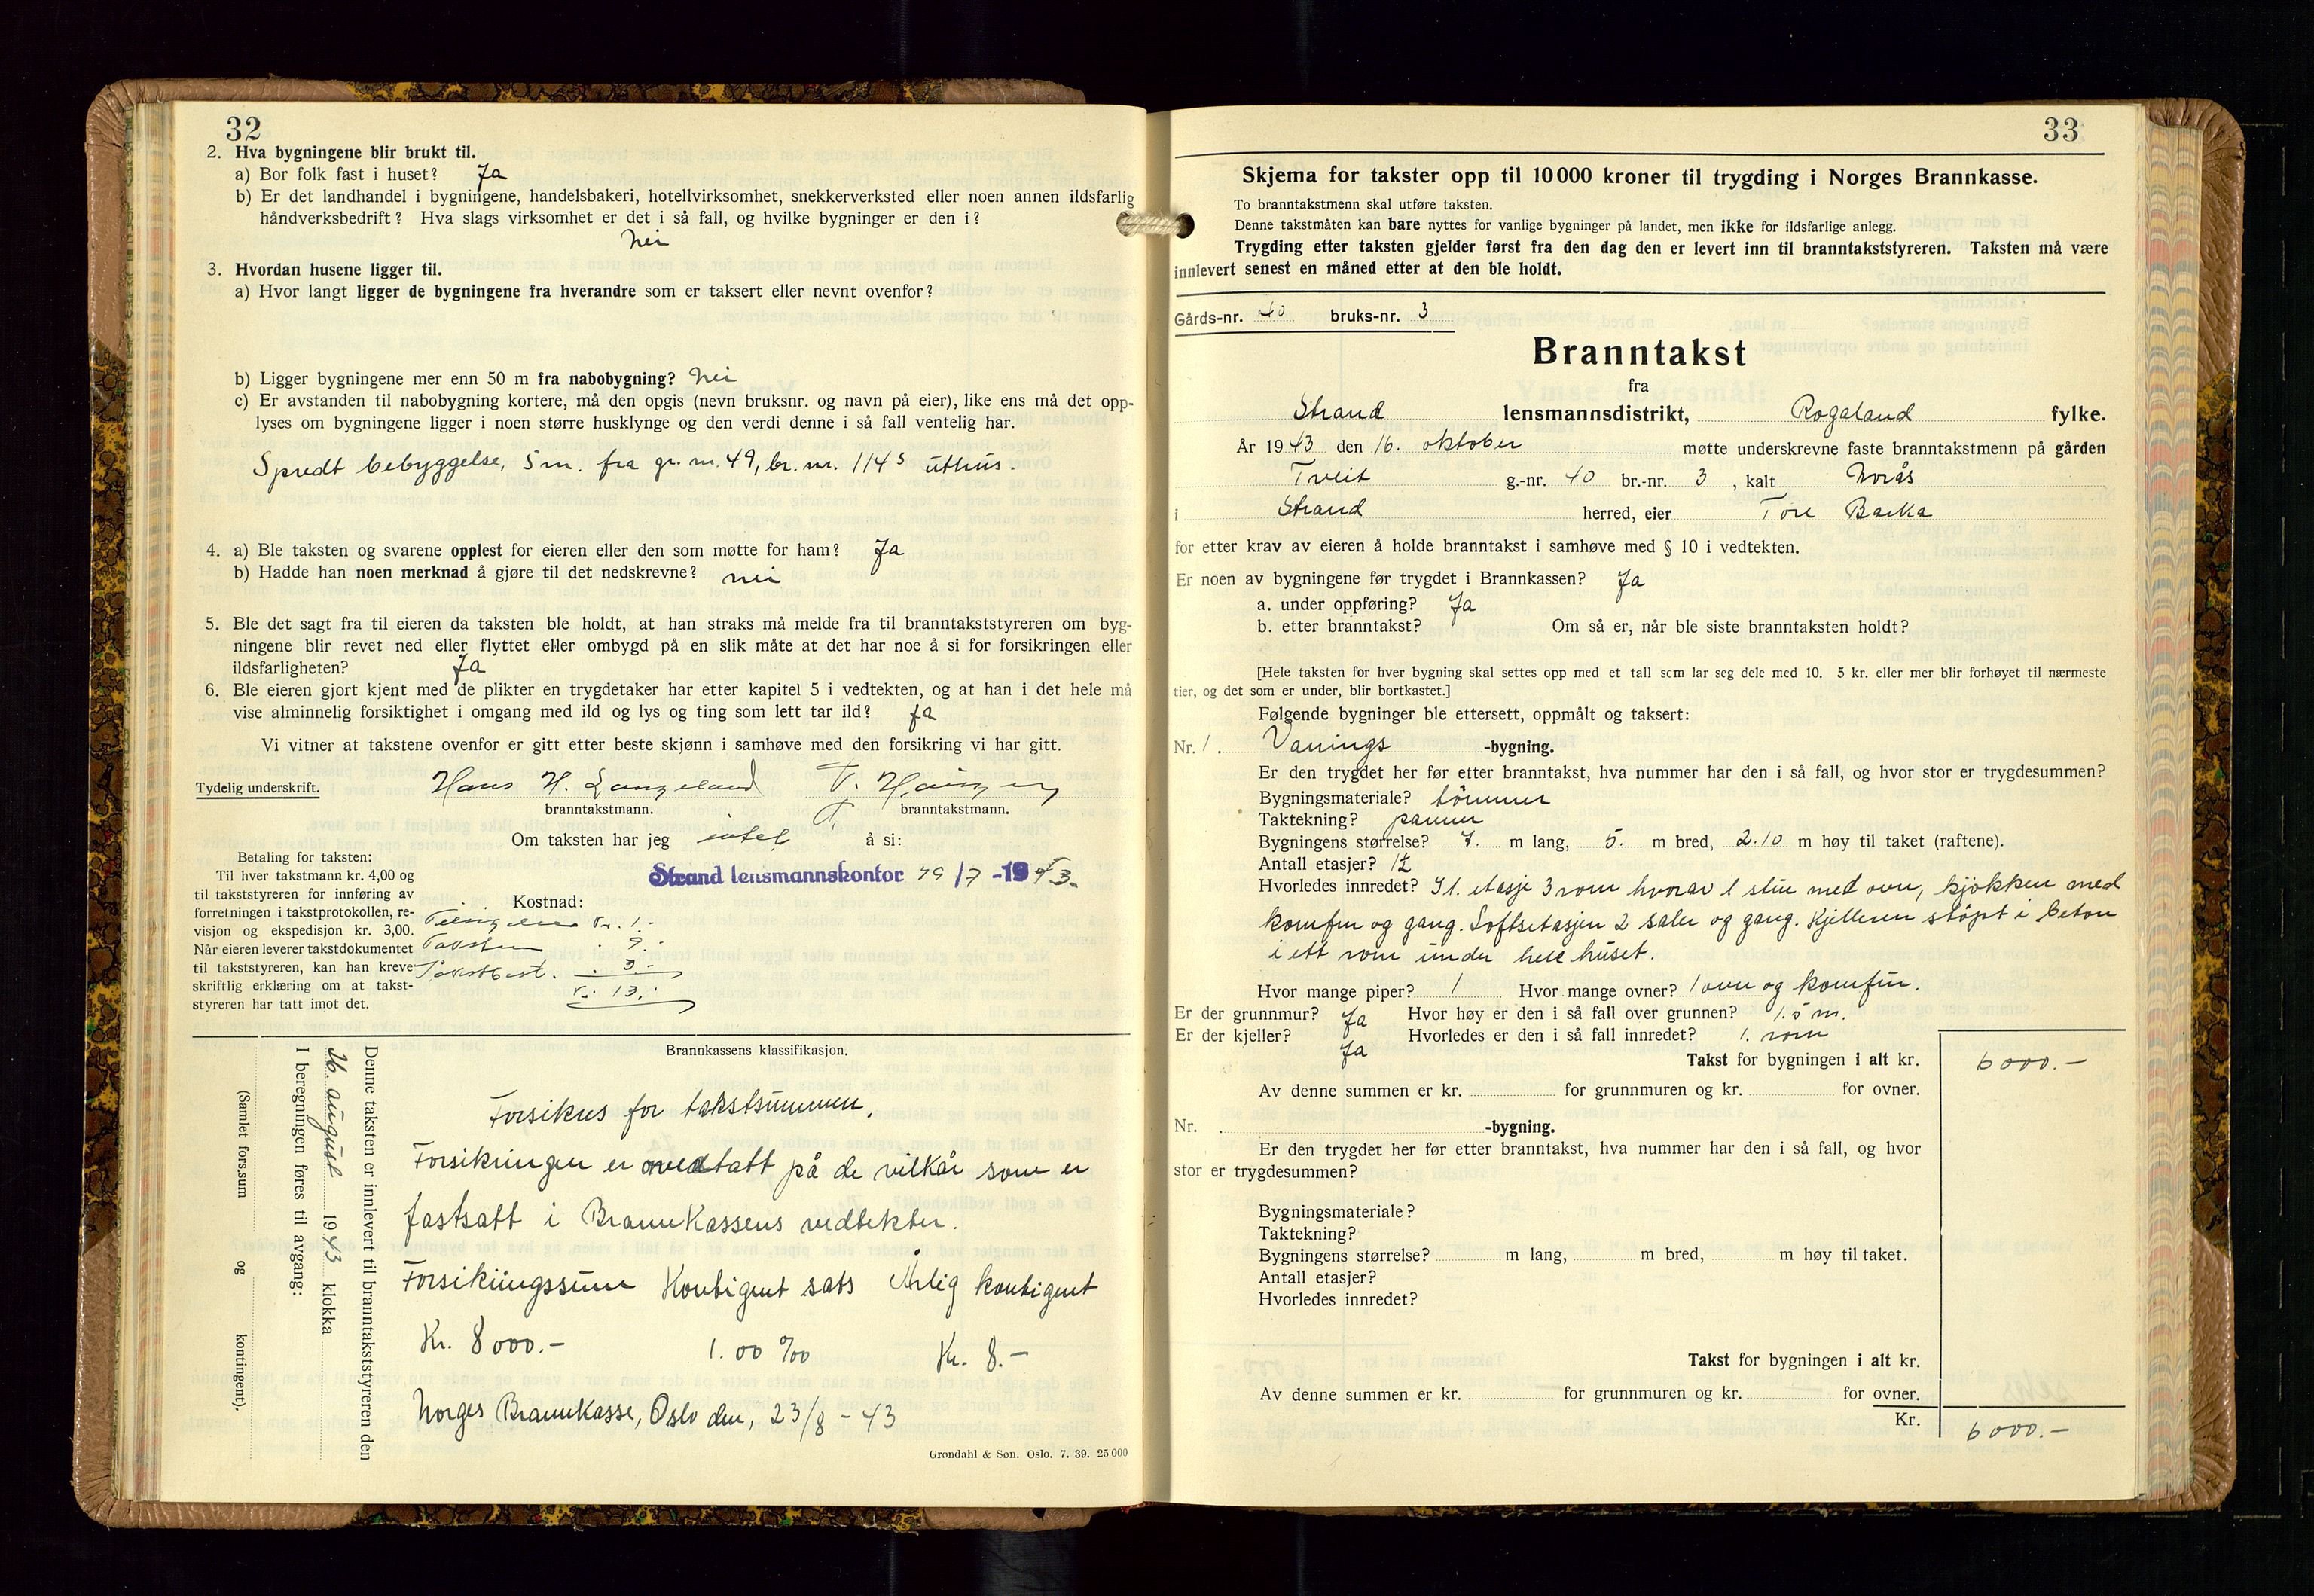 32
2. Hva bygningene blir brukt til.
a) Bor folk fast i huset? Ja
b) Er det landhandel i bygningene, handelsbakeri, hotellvirksomhet, snekkerverksted eller noen annen ildsfarlig
håndverksbedrift? Hva slags virksomhet er det i så fall, og hvilke bygninger er den i?
Nei
3. Hvordan husene ligger til.
a) Hvor langt ligger de bygningene fra hverandre som er taksert eller nevnt ovenfor?
b) Ligger bygningene mer enn 50 m fra nabobygning? Nei
c) Er avstanden til nabobygning kortere, må den opgis (nevn bruksnr. og navn på eier), like ens må det opp-
lyses om bygningene ligger i noen større husklynge og den verdi denne i så fall ventelig har.
Spredt bebyggelse, 5 m. fra gr. nr. 49, br. nr. 114⁵ uthus.
4. a) Ble taksten og svarene opplest for eieren eller den som møtte for ham? Ja
b) Hadde han noen merknad å gjøre til det nedskrevne? nei
5. Ble det sagt fra til eieren da taksten ble holdt, at han straks må melde fra til branntakststyreren om byg-
ningene blir revet ned eller flyttet eller ombygd på en slik måte at det har noe å si for forsikringen eller
ildsfarligheten? Ja
6. Ble eieren gjort kjent med de plikter en trygdetaker har etter kapitel 5 i vedtekten, og at han i det hele må
vise alminnelig forsiktighet i omgang med ild og lys og ting som lett tar ild? Ja
Vi vitner at takstene ovenfor er gitt etter beste skjønn i samhøve med den forsikring vi har gitt.
Tydelig underskrift. Hans H. Langeland T.
branntakstmann. branntakstmann.
Om taksten har jeg intet å si:
Strand lensmannskontor 29/7 -1943.
Betaling for taksten:
Til hver takstmann kr. 4,00 og
til takststyreren for innføring av
forretningen i takstprotokollen, re-
visjon og ekspedisjon kr. 3,00.
Når eieren leverer takstdokumentet
til takststyreren, kan han kreve
skriftlig erklæring om at takst-
styreren har tatt imot det.
Kostnad:
Kr. 1.-
Taksten - 9.-
Takstbest. - 3.-
Kr. 13.-
Denne taksten er innlevert til branntakststyreren den
26. august 1943 klokka
I beregningen føres til avgang:
(Samlet fors.sum og kontingent).
Brannkassens klassifikasjon.
Forsikres for takstsummen.
Forsikringen er vedtatt på de vilkår som er
fastsatt i Brannkassens vedtekter.
Forsikringssum Kontigent sats Årlig kontigent
Kr. 8000.- 1.00 ‰ Kr. 8.-
Norges Brannkasse, Oslo den, 23/8 - 43
Grøndahl & Søn. Oslo. 7. 39. 25 000
33
Skjema for takster opp til 10 000 kroner til trygding i Norges Brannkasse.
To branntakstmenn skal utføre taksten.
Denne takstmåten kan bare nyttes for vanlige bygninger på landet, men ikke for ildsfarlige anlegg.
Trygding etter taksten gjelder først fra den dag den er levert inn til branntakststyreren. Taksten må være
innlevert senest en måned etter at den ble holdt.
Gårds-nr. 40 bruks-nr. 3
Branntakst
fra
Strand lensmannsdistrikt, Rogaland fylke.
År 1943 den 16. oktober møtte underskrevne faste branntakstmenn på gården
Tveit g.-nr. 40 br.-nr. 3, kalt Norås
i Strand herred, eier Tore Barka
for etter krav av eieren å holde branntakst i samhøve med § 10 i vedtekten.
Er noen av bygningene før trygdet i Brannkassen? Ja
a. under oppføring? Ja
b. etter branntakst? Om så er, når ble siste branntaksten holdt?
[Hele taksten for hver bygning skal settes opp med et tall som lar seg dele med 10. 5 kr. eller mer blir forhøyet til nærmeste
tier, og det som er under, blir bortkastet.]
Følgende bygninger ble ettersett, oppmålt og taksert:
Nr. 1. Vånings -bygning.
Er den trygdet her før etter branntakst, hva nummer har den i så fall, og hvor stor er trygdesummen?
Bygningsmateriale? tømmer
Taktekning? panner
Bygningens størrelse? 7. m lang, 5. m bred, 2.10 m høy til taket (raftene).
Antall etasjer? 1½
Hvorledes innredet? I 1. etasje 3 rom hvorav 1 stue med ovn, kjøkken med
komfur og gang. Loftsetasjen 2 saler og gang. Kjelleren støpt i beton
i ett rom under hele huset.
Hvor mange piper? 1 Hvor mange ovner? 1 ovn og komfur.
Er der grunnmur? Ja Hvor høy er den i så fall over grunnen? 1.0 m.
Er der kjeller? Ja Hvorledes er den i så fall innredet? 1. rom
Takst for bygningen i alt kr. 6000.-
Av denne summen er kr. for grunnmuren og kr. for ovner.
Nr. . -bygning.
Er den trygdet her før etter branntakst, hva nummer har den i så fall, og hvor
stor er trygdesummen?
Bygningsmateriale?
Taktekning?
Bygningens størrelse? m lang, m bred, m høy til taket.
Antall etasjer?
Hvorledes innredet?
Takst for bygningen i alt kr.
Av denne summen er kr. for grunnmuren og kr. for ovner.
Kr. 6000.-